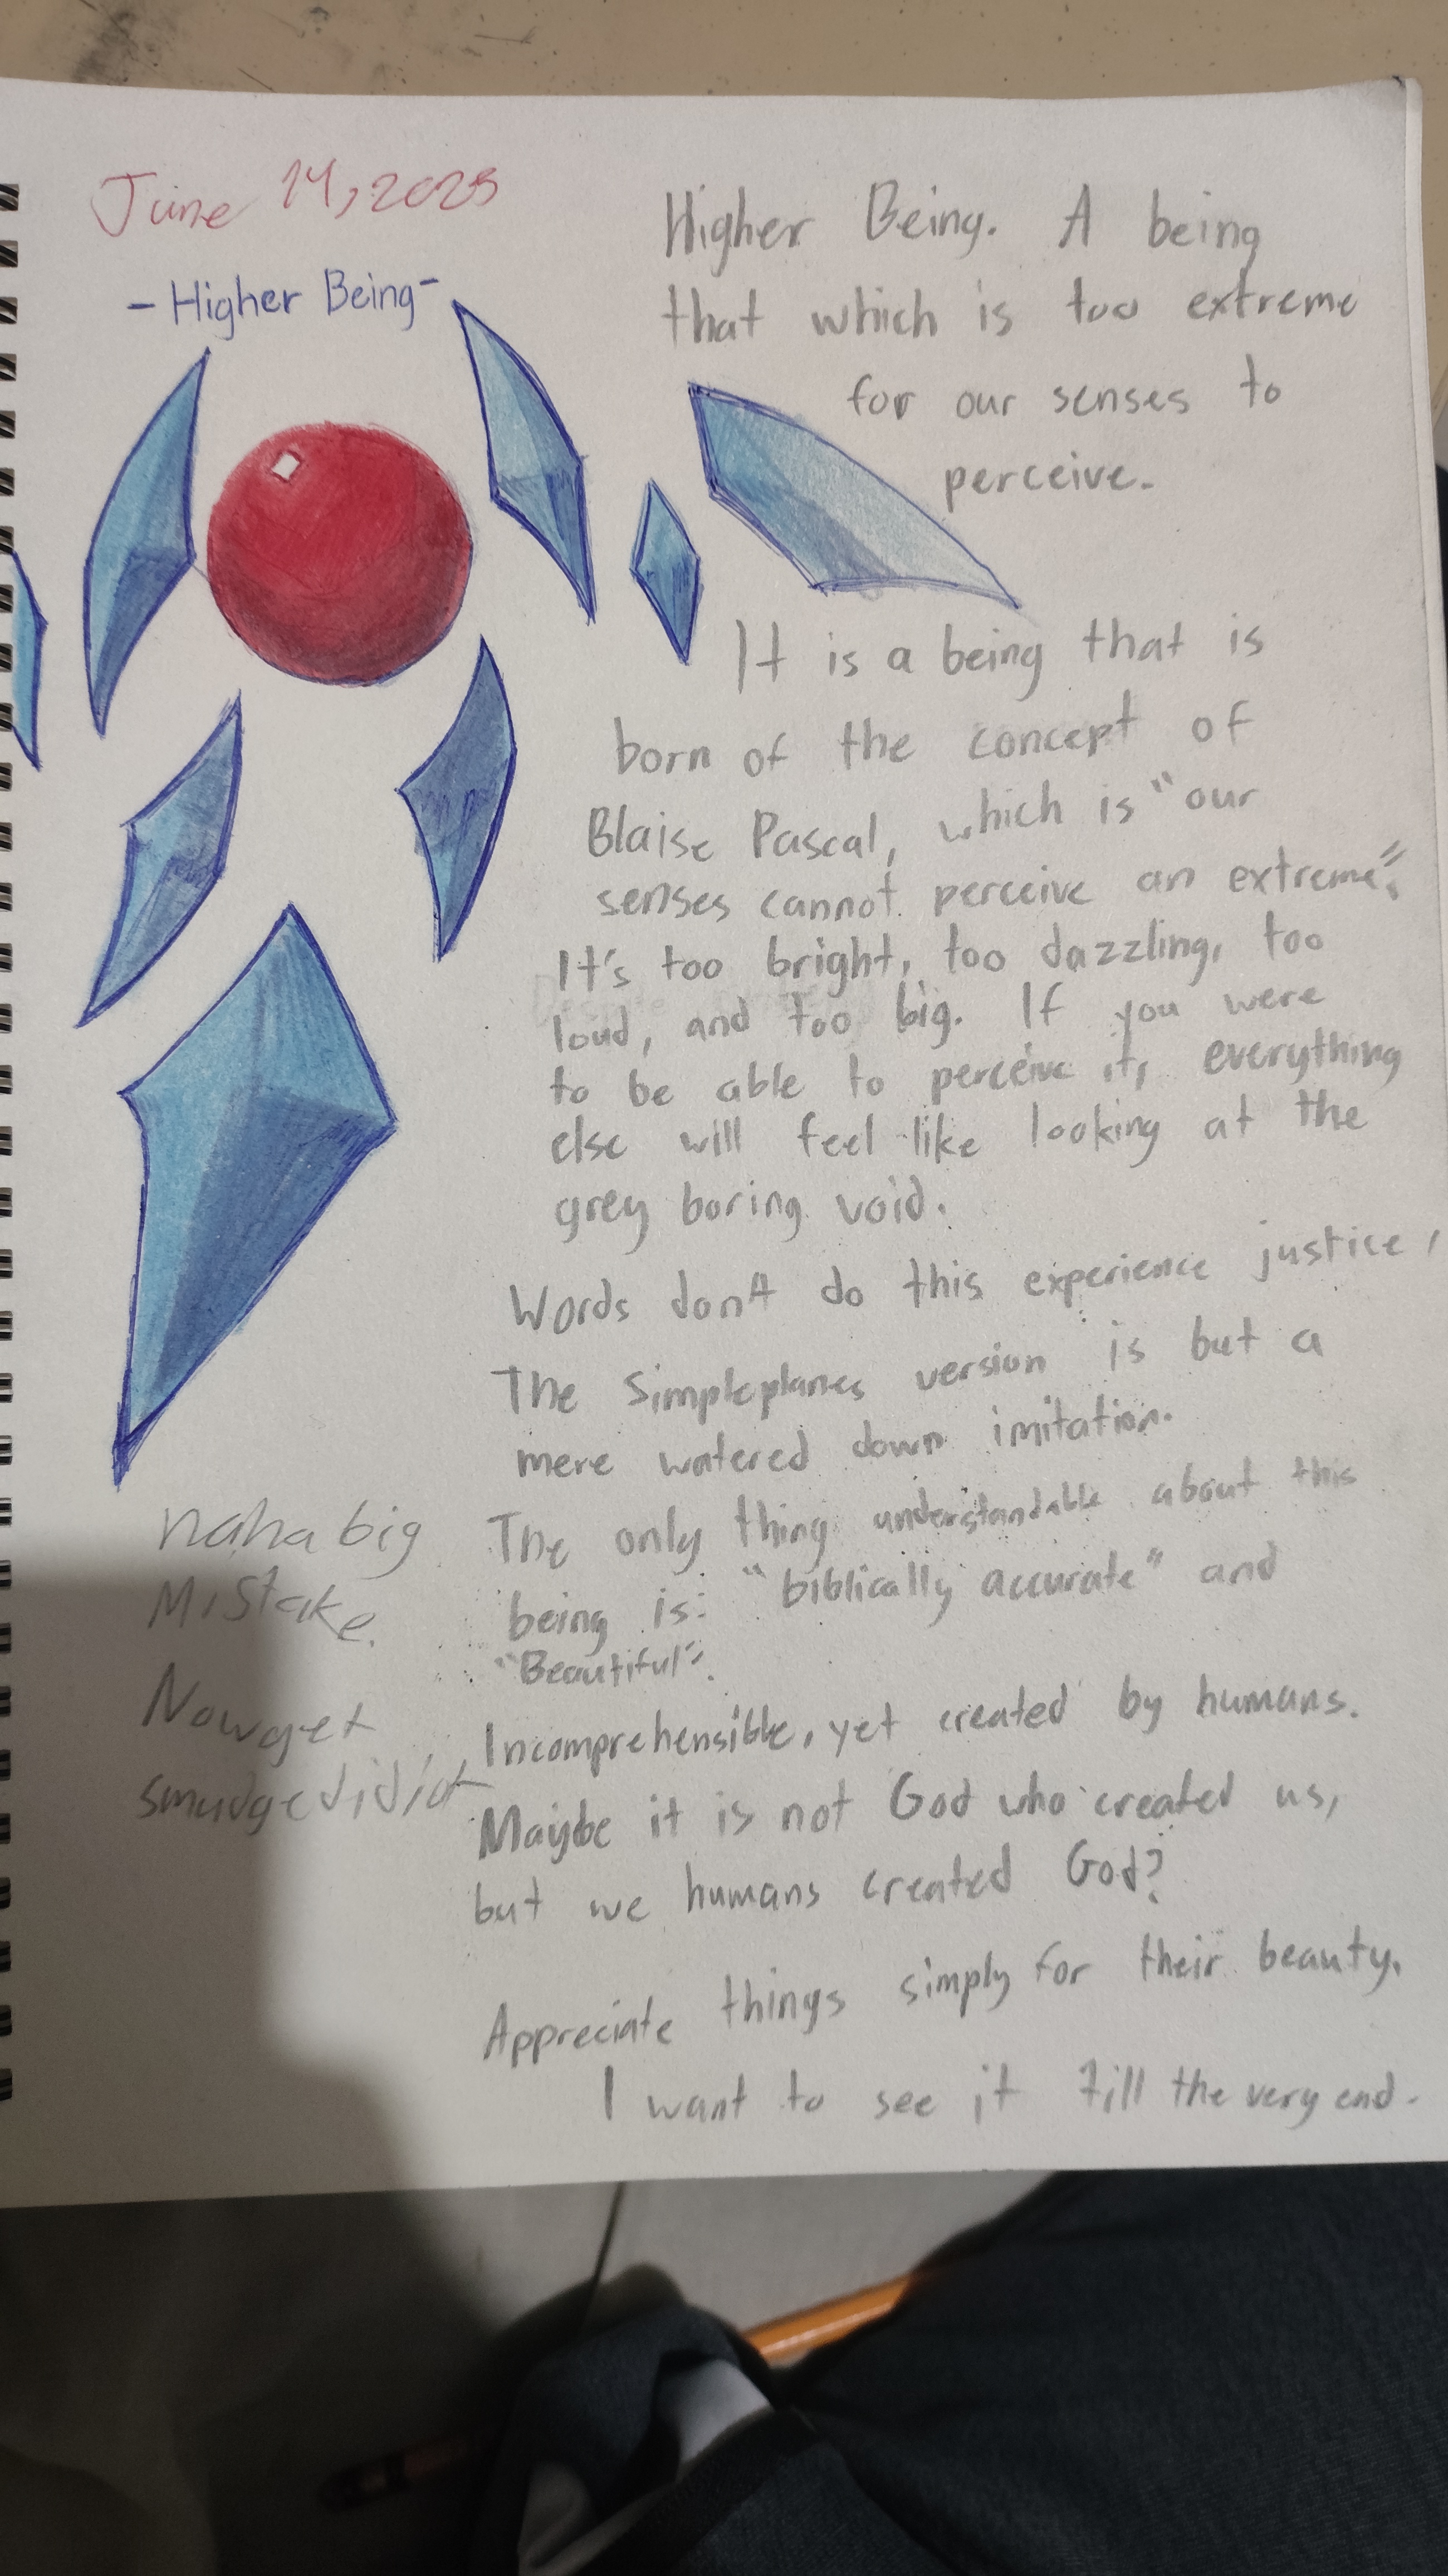 June 14, 2025
- Higher Being -
Higher Being. A being
that which is too extreme
for our senses to
perceive.
It is a being that is
born of the concept of
Blaise Pascal, which is "our
senses cannot perceive an extreme".
It's too bright, too dazzling, too
loud, and too big. If you were
to be able to perceive it, everything
else will feel like looking at the
grey boring void.
Words don't do this experience justice,
The Simpleplanes version is but a
mere watered down imitation.
The only thing understandable about this
being is: "biblically accurate" and
"Beautiful".
Incomprehensible, yet created by humans.
Maybe it is not God who created us,
but we humans created God?
Appreciate things simply for their beauty.
I want to see it till the very end.
haha big
Mistake.
Now get
smudged idiot